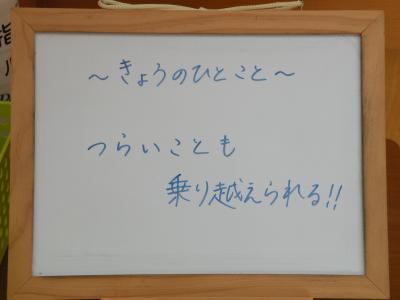 ～きょうのひとこと～
つらいことも
乗り越えられる!!
指